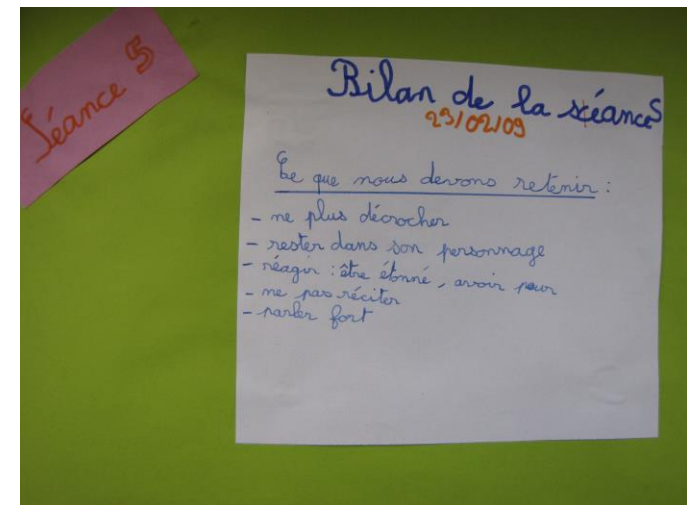 Séance 5
Bilan de la séance 5
23/02/09
Ce que nous devons retenir :
- ne plus décrocher
- rester dans son personnage
- réagir : être étonné, avoir peur
- ne pas réciter
- parler fort